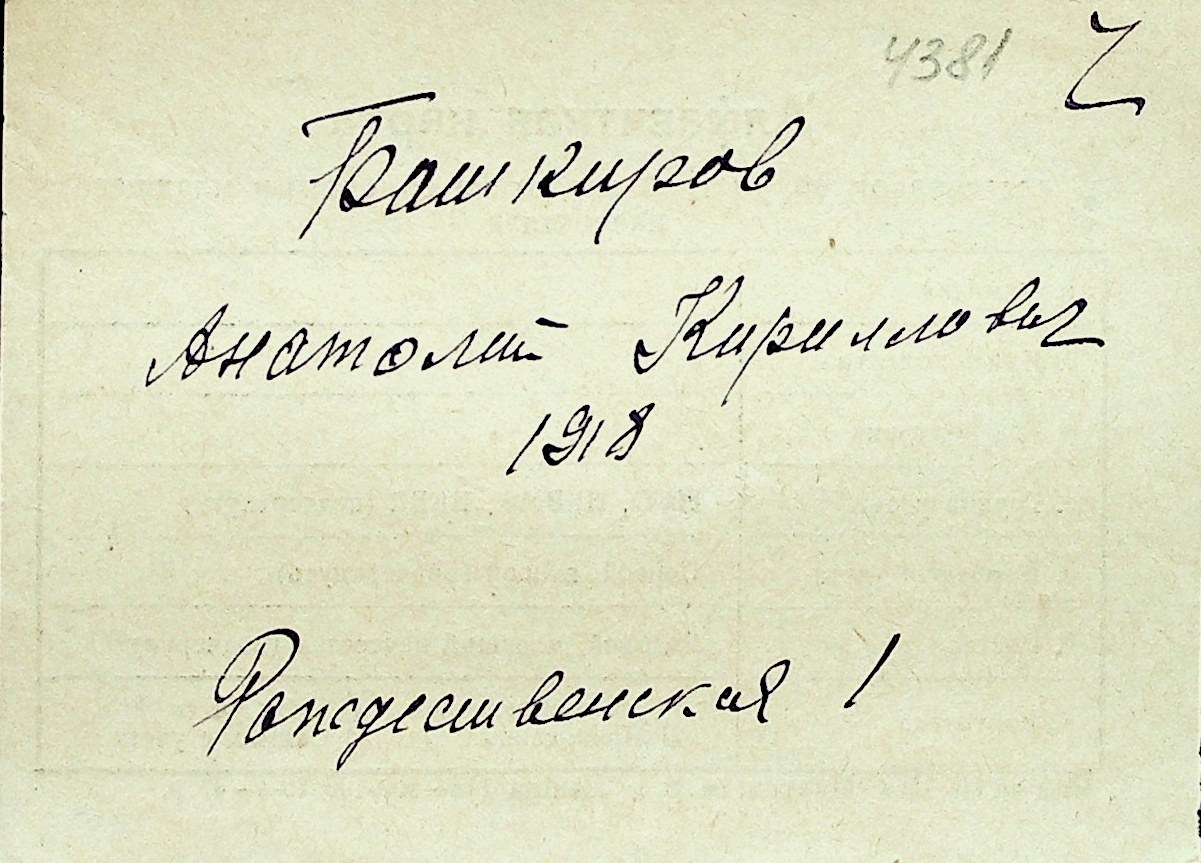 4381
Башкиров
Анатолий Кириллович
1918
Рождественская 1